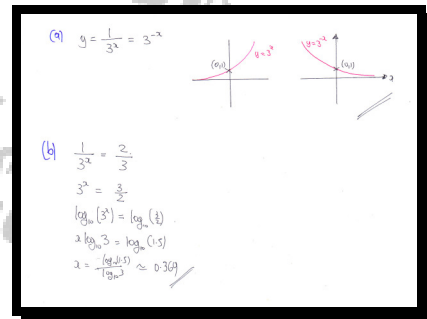 (a) y = 1/3ˣ = 3⁻ˣ
(0,1) y=3ˣ
y=3⁻ˣ (0,1) x
(b) 1/3ˣ = 2/3
3ˣ = 3/2
log₁₀(3ˣ) = log₁₀(3/2)
x log₁₀ 3 = log₁₀(1.5)
x = log₁₀(1.5)/log₁₀3 ≈ 0.369